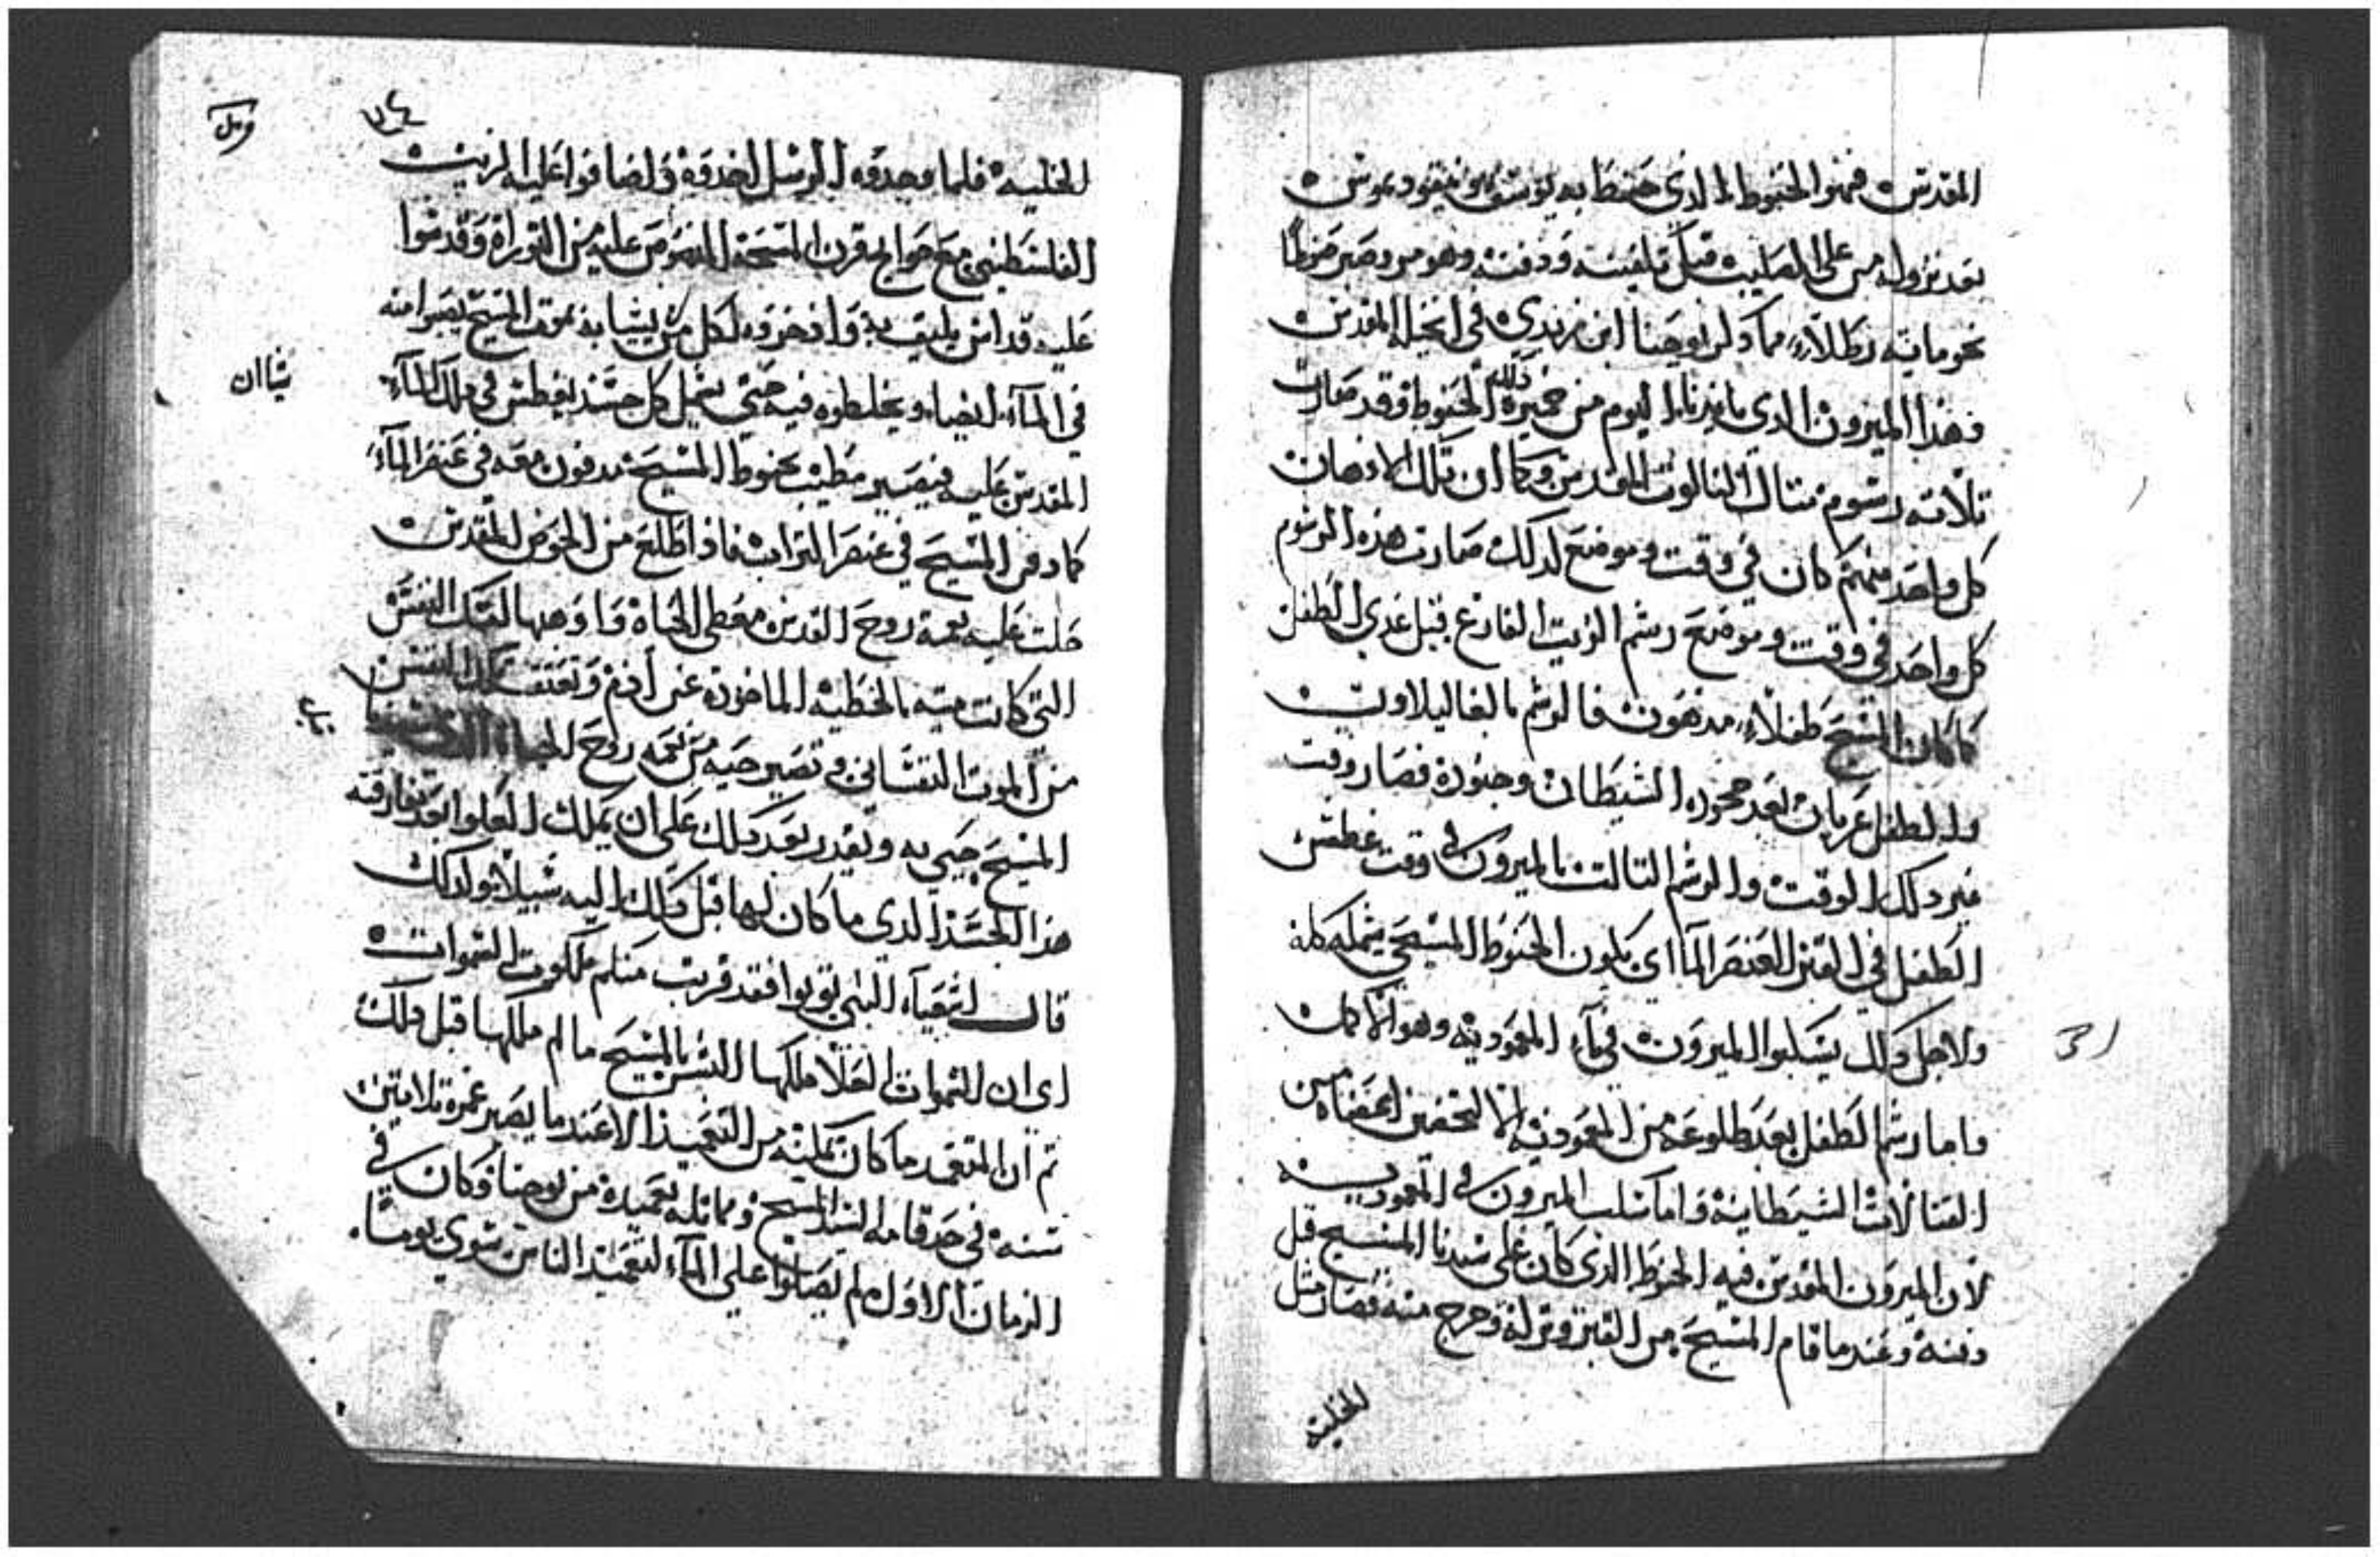 المقدس فهو الحنوط الذي حنط به يوسف ونيقوديموس
بعد نزوله من على الصليب قبل تلفيفه ودفنه وهو مر وصبر مخلوطا
نحو مايه رطلا مما ذكر يوحنا ابن زبدي في انجيله المقدس
فهذا الميرون الدي بايدينا اليوم من خميرة ذلك الحنوط وقد صارت
تلاته رسوم متال التالوت المقدس وكما ان تلك الادهان
كل واحد منهم كان في وقت وموضع لدلك صارت هذه الرسوم
كل واحد في وقت وموضع رسم الزيت الفارغ قبل عري الطفل
كما كان المسيح طفلا مدهون فالرشم بالغاليلاون
والطفل عريان بعد جحوده الشيطان وجنوده فصار وقت
غير دلك الوقت والرشم التالت بالميرون في وقت غطس
الطفل في القبر العنصر الماء اي يكون الحنوط المسيحي يشمله كله
ولاجل ذلك يسكبوا الميرون في ماء المعمودية وهو الاكمال
واما رشم الطفل بعد طلوعه من المعموديه الا لتحصين اعضاه من
القتالات الشيطانية واما سكب الميرون في المعمودية
لان الميرون المقدس فيه الحنوط الذي كان على سيدنا المسيح قبل
دفنه وعند ما قام المسيح من القبر وتركه وخرج منه فصار متل
الخليه
٧٤
الخليه فلما وجدوه الرسل اخدوه واضافوا عليه الزيت
الفلسطيني مع حوايج قرن المسحة المنصوص عليه من التوراة وقدسوا
عليه قداس يليق به واذخروه لكل من يشا به بموت المسيح يصبوا منه
شاان
في الماء ايضا ويخلطوه فيه حتى يشمل كل جسد يغطس في ذلك الماء
المقدس عليه فيصير مطيب بحنوط المسيح مدفون معه في عنصر الماء
كما دفن المسيح في عنصر التراب فاذا طلع من الحوض المقدس
حلت عليه نعمة روح القدس معطي الحياة واوهبها لتلك النفس
التي كانت ميته بالخطيه الماخوده عن ادم وتعتق تلك النفس
من الموت النفساني وتصير حيه من نعمه روح الحياه
المسيح حيي به ويقدر بعد ذلك على ان يملك العلوا بعد مفارقته
هذا الجسد الدي ما كان لها قبل ذلك اليه سبيلا ولدلك
قال اشعياء النبي توبوا فقد قربت منكم ملكوت السموات
اي ان السموات العلا ملكها البشر بالمسيح ما لم ملكها قبل ذلك
تم ان المتعمد ما كان تكملته من التعميد الا عند ما يصير عمره تلاتين
سنه في حد قامة السيد المسيح ومماتله بعميده من يوحنا وكان في
الزمان الاول لم يصلوا على الماء لتعميد الناس سوى يوما